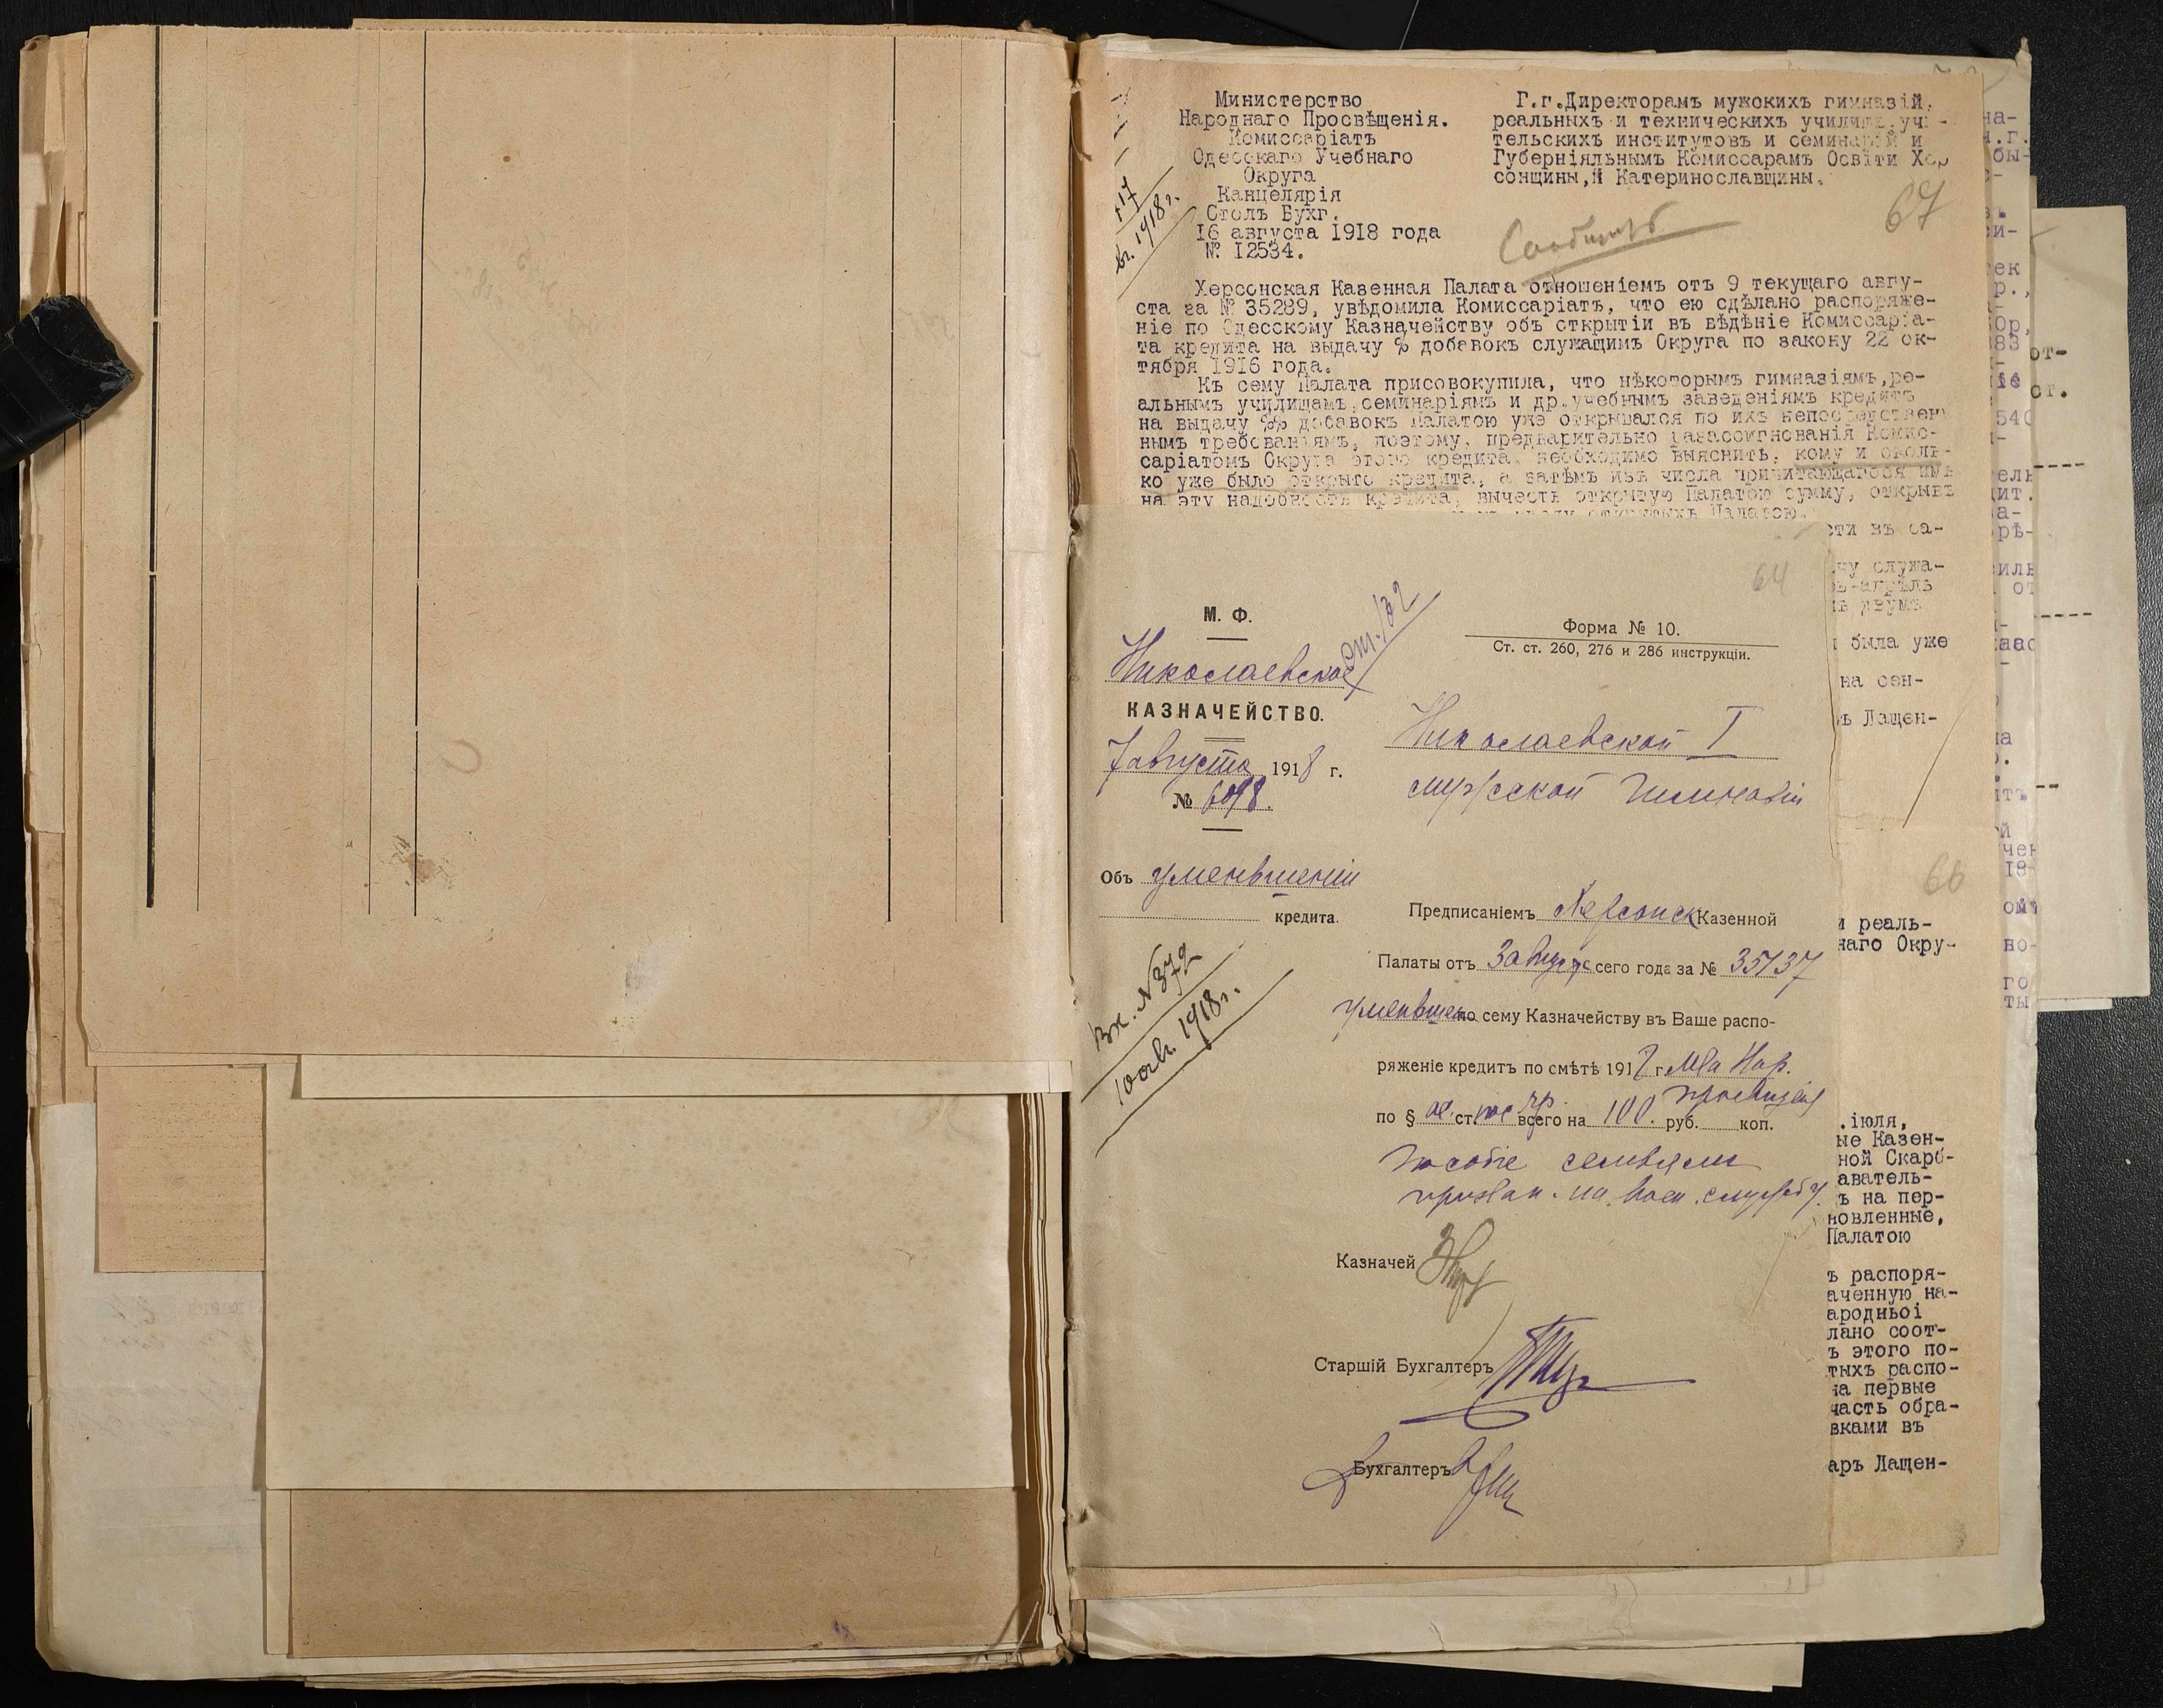 Министерство
Народнаго Просвѣщенія.
Комиссаріатъ
Одесскаго Учебнаго
Округа
Канцелярія
Столъ Бухг.
16 августа 1918 года
№ 12534.
Г.г.Директорамъ мужскихъ гимназій,
реальныхъ и техническихъ училищъ, учи-
тельскихъ институтовъ и семинарій и
Губерніяльнымъ Комиссарамъ Освіти Хер
сонщины,й Катеринославщины.
67
1918 г.
Сообщить
Херсонская Казенная Палата отношеніемъ отъ 9 текущаго авгу-
ста за № 35289, увѣдомила Комиссаріатъ, что ею сдѣлано распоряже-
ніе по Одесскому Казначейству объ открытіи въ вѣдѣніе Комиссаріа-
та кредита на выдачу % добавокъ служащимъ Округа по закону 22 ок-
тября 1916 года.
Къ сему Палата присовокупила, что нѣкоторымъ гимназіямъ,ре-
альнымъ училищамъ,семинаріямъ и др.учебнымъ заведеніямъ кредитъ
на выдачу %% добавокъ Палатою уже открывался по ихъ непосредствен
нымъ требованіямъ, поэтому, предварительно разассигнованія Комис-
саріатомъ Округа этого кредита, необходимо выяснить, кому и сколь-
ко уже было открыто кредита, а затѣмъ изъ числа причитающагося имъ
на эту надобность кредита, вычесть открытую Палатою сумму, открывъ
открытыхъ Палатою.
64
М. Ф.
Николаевское
КАЗНАЧЕЙСТВО.
7 августа 1918 г.
№ 6098.
Объ уменьшеніи
кредита.
Вх. № 372
10 авг. 1918 г.
Форма № 10.
Ст. ст. 260, 276 и 286 инструкціи.
Николаевской I
мужской гимназіи
Предписаніемъ Херсонск Казенной
Палаты отъ 3 августа сего года за № 35137
уменьшенъ по сему Казначейству въ Ваше распо-
ряженіе кредитъ по смѣтѣ 191 г. М-ва Нар.
просвѣщенія
по § ст. всего на 100. руб. коп.
пособіе семьямъ
призван. на воен. службу.
Казначей
Старшій Бухгалтеръ
Бухгалтеръ
сти въ са-
чу служа-
ь-апрѣль
ъ двумъ
была уже
на сен-
ъ Лащен-
66
и реаль-
наго Окру-
.іюля,
ые Казен-
ной Скарб-
аватель-
ъ на пер-
новленные,
Палатою
ъ распоря-
аченную на-
ародньоі
лано соот-
ъ этого по-
тыхъ распо-
на первые
часть обра-
вками въ
аръ Лащен-